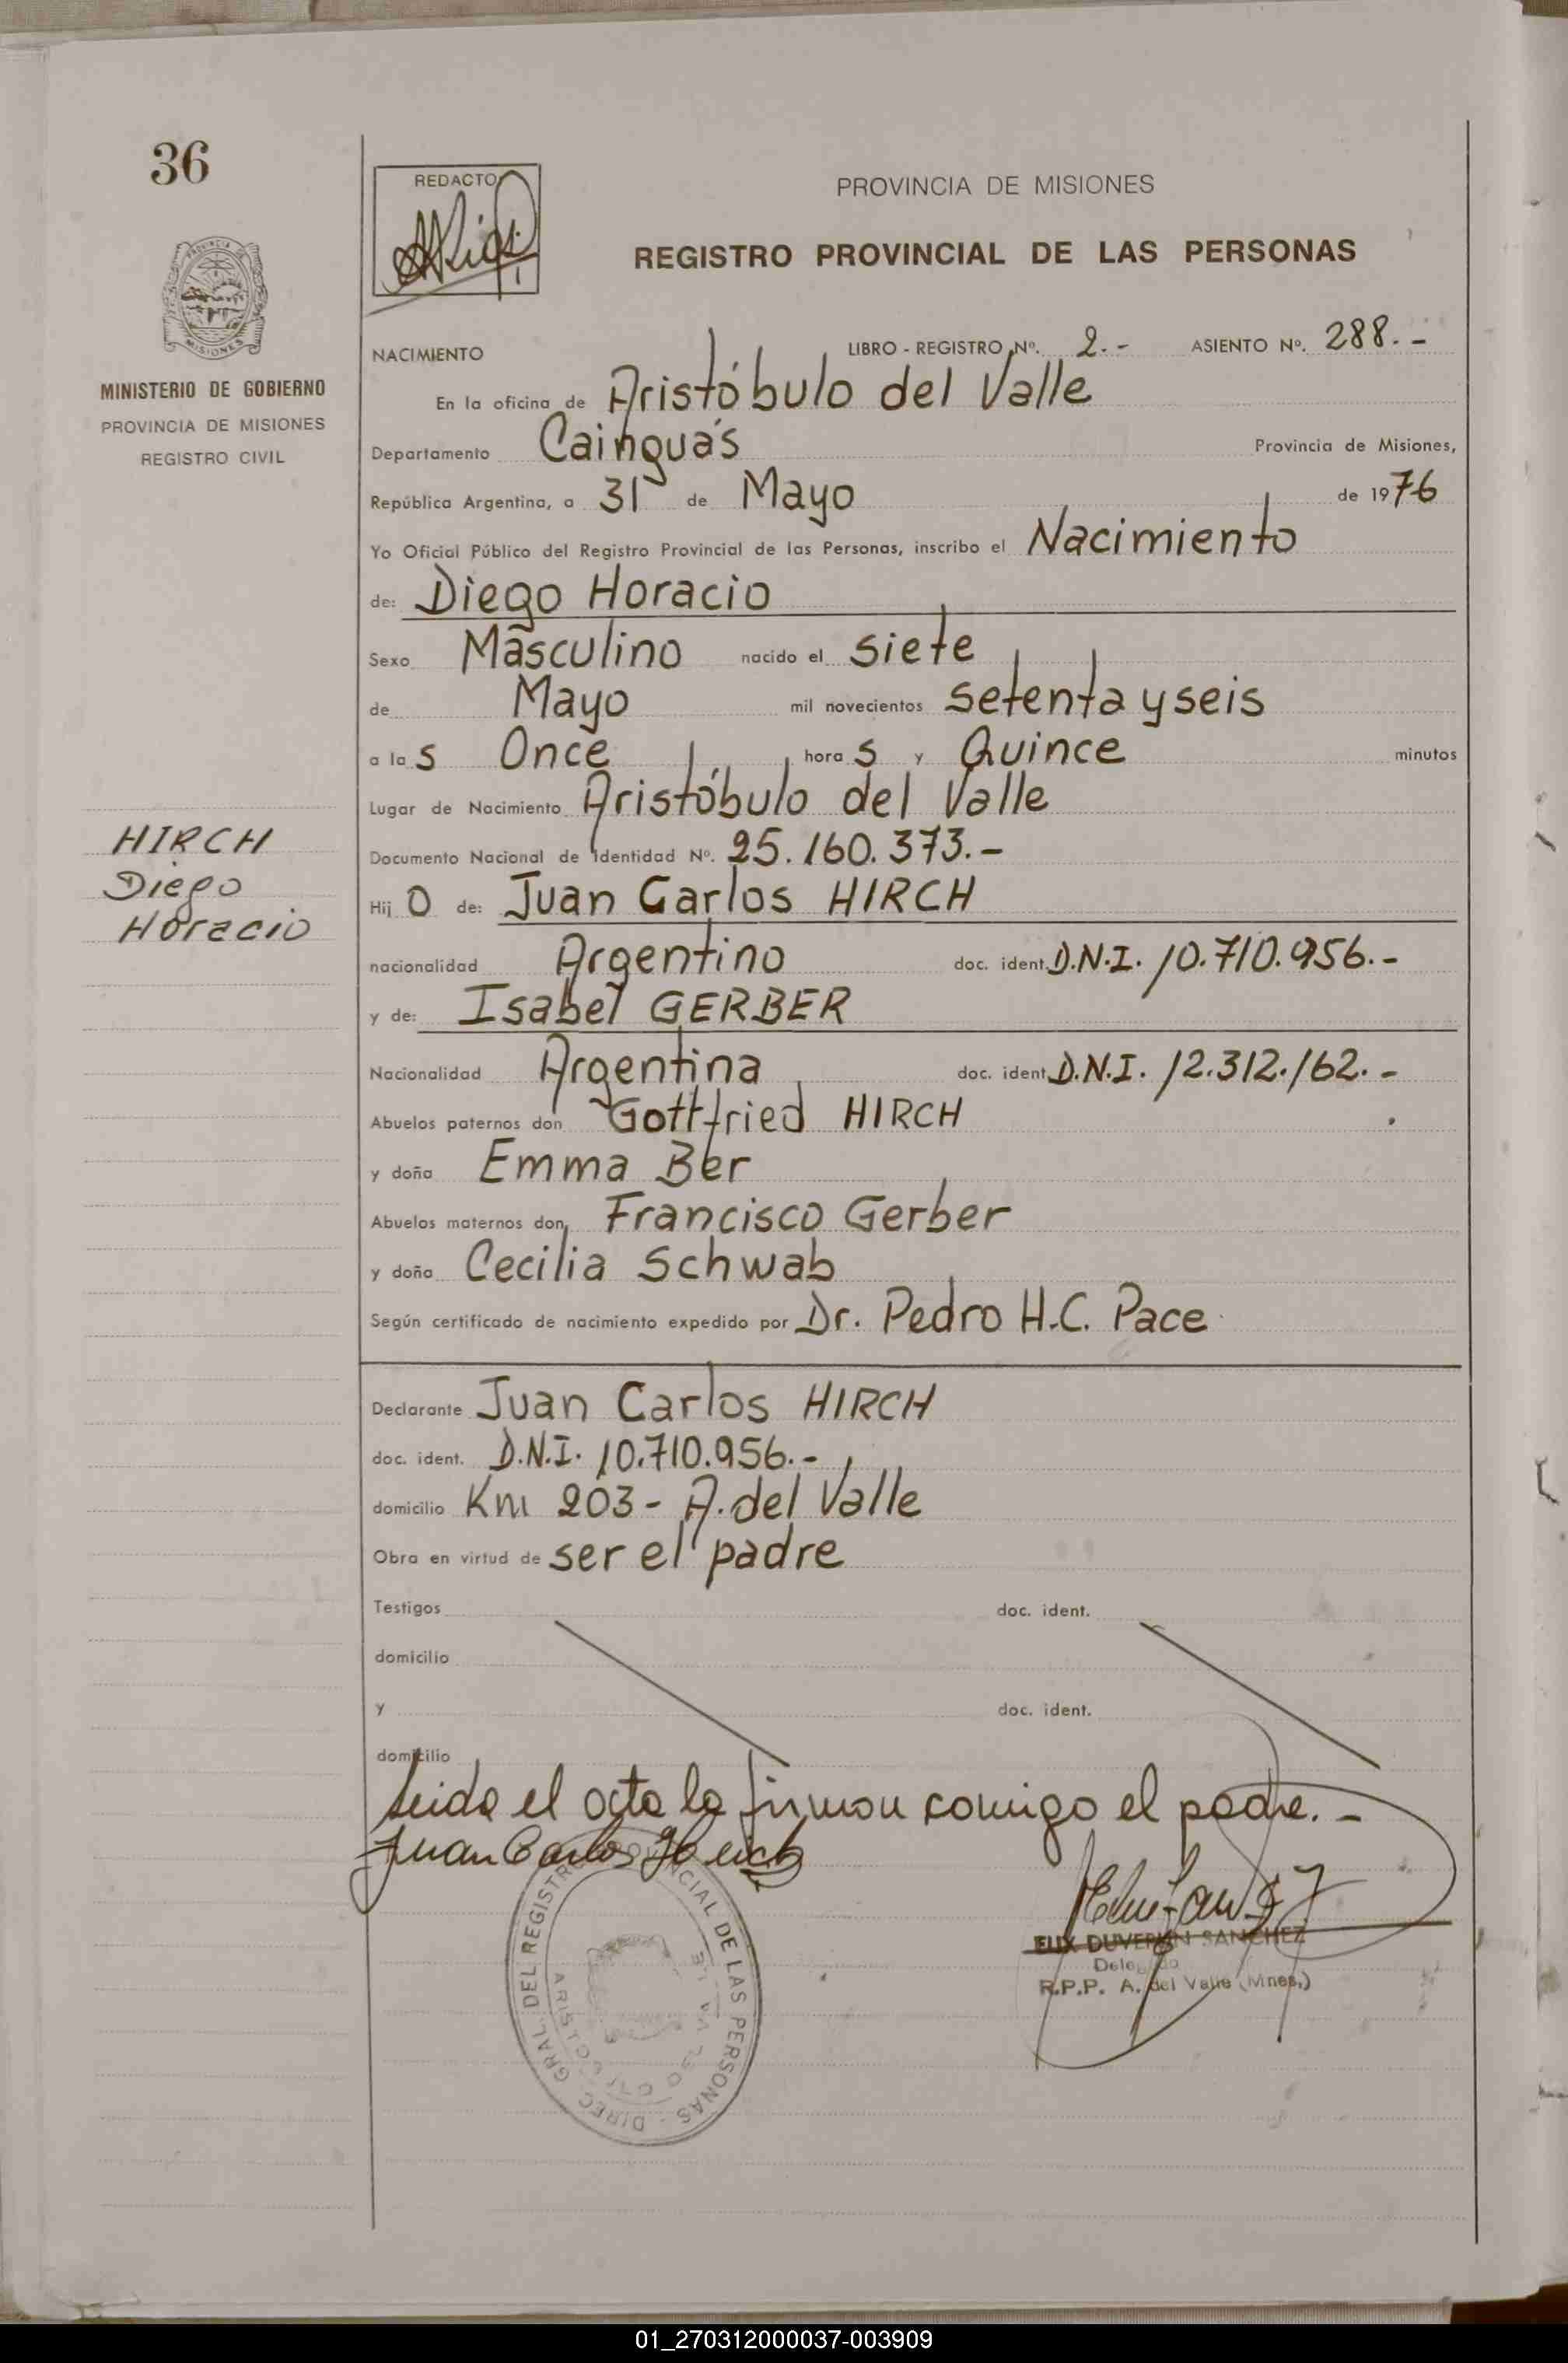 36
PROVINCIA DE MISIONES
MINISTERIO DE GOBIERNO
PROVINCIA DE MISIONES
REGISTRO CIVIL
HIRCH
Diego
Horacio
REDACTO
PROVINCIA DE MISIONES
REGISTRO PROVINCIAL DE LAS PERSONAS
NACIMIENTO LIBRO - REGISTRO Nº. 2.- ASIENTO Nº. 288.-
En la oficina de Aristóbulo del Valle
Departamento Cainguás Provincia de Misiones,
República Argentina, a 31 de Mayo de 1976
Yo Oficial Público del Registro Provincial de las Personas, inscribo el Nacimiento
de: Diego Horacio
Sexo Masculino nacido el siete
de Mayo mil novecientos setenta y seis
a las Once horas y Quince minutos
Lugar de Nacimiento Aristóbulo del Valle
Documento Nacional de Identidad Nº. 25.160.373.-
Hijo de: Juan Carlos HIRCH
nacionalidad Argentino doc. ident. D.N.I. 10.710.956.-
y de: Isabel GERBER
Nacionalidad Argentina doc. ident. D.N.I. 12.312.162.-
Abuelos paternos don Gottfried HIRCH
y doña Emma Ber
Abuelos maternos don Francisco Gerber
y doña Cecilia Schwab
Según certificado de nacimiento expedido por Dr. Pedro H.C. Pace
Declarante Juan Carlos HIRCH
doc. ident. D.N.I. 10.710.956.-
domicilio Km 203 - A. del Valle
Obra en virtud de ser el padre
Testigos doc. ident.
domicilio
y doc. ident.
domicilio
Leida el acta la firman comigo el padre.-
Juan Carlos Hirch
DIREC. GRAL. DEL REGISTRO PROVINCIAL DE LAS PERSONAS
ARISTOBULO DEL VALLE
SANCHEZ
Delegado
R.P.P. A. del Valle (Mnes.)
01_270312000037-003909